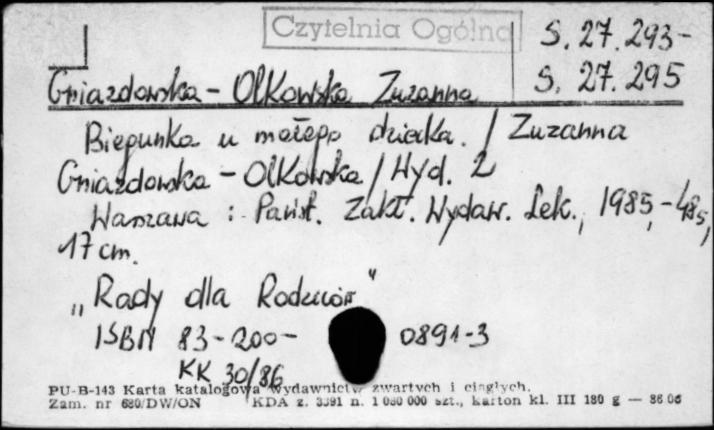 Czytelnia Ogólna
S. 27.293-
S. 27.295
Gniazdowska - Olkowska Zuzanna
Biegunka u małego dziecka. / Zuzanna
Gniazdowska - Olkowska / Wyd. 2
Warszawa : Państ. Zakł. Wydaw. Lek., 1985, - 48 s,
17 cm.
„Rady dla Rodziców"
ISBN 83-200- 0891-3
KK 30/86
PU-B-143 Karta katalogowa wydawnictw zwartych i ciągłych.
Zam. nr 680/DW/ON KDA z. 3391 n. 1 080 000 szt., karton kl. III 180 g — 86 06